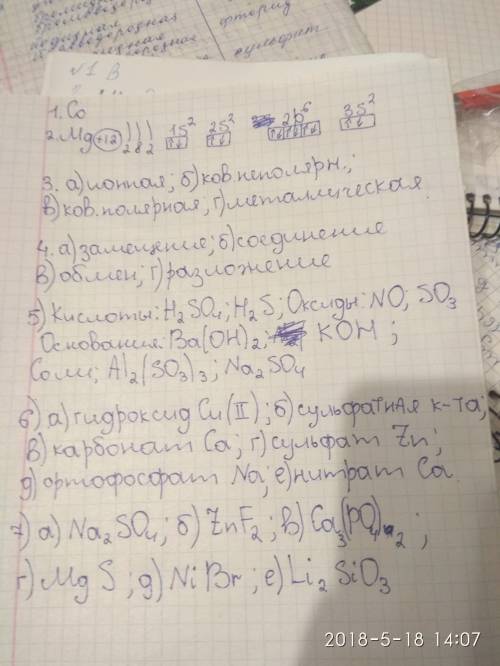 сульфит
№1 В
1. Co
2. Mg +12 ) ) ) 2 8 2 1S² 2S² 2p⁶ 3S²
3. а) ионная; б) ков. неполярн.;
в) ков. полярная; г) металлическая
4. а) замещение; б) соединение
в) обмен; г) разложение
5) Кислоты: H₂SO₄; H₂S; Оксиды: NO; SO₃
Основания: Ba(OH)₂; KOH;
Соли; Al₂(SO₃)₃; Na₂SO₄
6) а) гидроксид Cu(II); б) сульфатная к-та;
в) карбонат Ca; г) сульфат Zn;
д) ортофосфат Na; е) нитрат Ca
7) а) Na₂SO₄; б) ZnF₂; в) Ca₃(PO₄)₂;
г) MgS; д) NiBr; е) Li₂SiO₃
2018-5-18 14:07